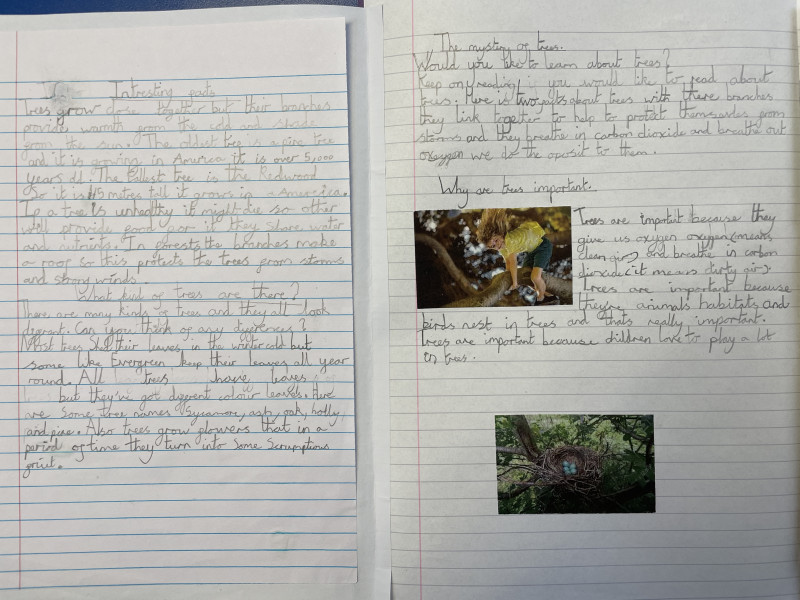 Intresting parts
Trees grow close together but their branches
provide warmth from the cold and shade
from the sun. The oldest tree is a pine tree
and it is growing in America it is over 5,000
years old. The tallest tree is the Redwood
So it is 115 metres tall it grows in America.
If a tree is unhealthy it might die so other
will provide food for it they share water
and nutrients. In forests the branches make
a roof so this protects the trees from storms
and strong winds.
What kind of trees are there?
There are many kinds of trees and they all look
diffrent. Can you think of any diffrences?
Most trees Shed their leaves in the winter cold but
some like Evergreen keep their leaves all year
round. All trees have leaves
but they've got diffrent colour leaves. Here
are Some tree names Sycamore, ash, oak, holly,
and pine. Also trees grow flowers that in a
period of time they turn into Some Scrumptious
fruit.
The mystery of trees.
Would you like to learn about trees?
Keep on reading if you would like to read about
trees. Here is two parts about trees with there branches
they link together to help to protect themselves from
storms and they breathe in carbon dioxide and breathe out
oxeygen we do the oposit to them.
Why are trees important.
Trees are importit because they
give us oxygen oxygen(means
clean air) and breathe in carbon
dioxide(it means dirty air).
Trees are important because
they're animals habitats and
birds nest in trees and thats really important.
Trees are important because children love to play a lot
on trees.